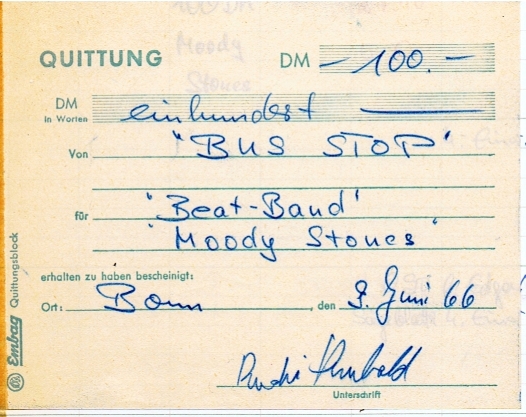 QUITTUNG DM – 100. –
DM in Worten einhundert
Von "BUS STOP"
für "Beat-Band"
"Moody Stones"
erhalten zu haben bescheinigt:
Ort: Bonn, den 9. Juni 66
Unterschrift
Embag Quittungsblock